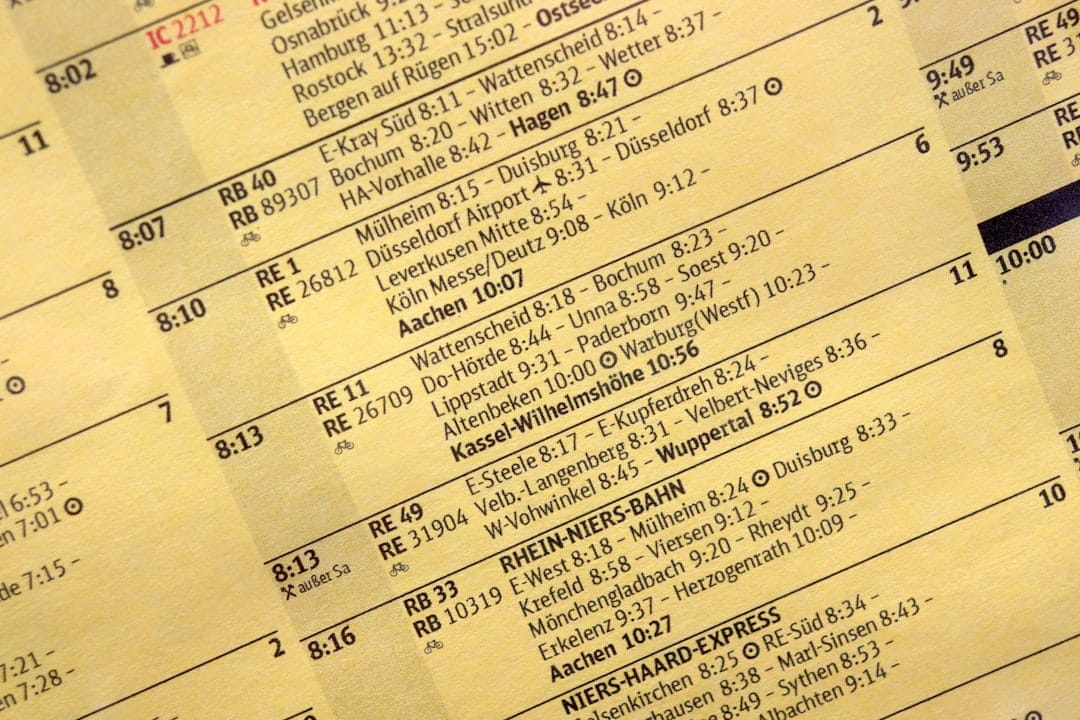 11
8
7
6:53 –
7:01
7:15 –
2
7:21 –
7:28 –
8:02
IC 2212
Gelsenk
Osnabrück 9:2
Hamburg 11:13 – Stralsund
Rostock 13:32 –
Bergen auf Rügen 15:02 – Ostsee
8:07
RB 40
RB 89307
E-Kray Süd 8:11 – Wattenscheid 8:14 –
Bochum 8:20 – Witten 8:32 – Wetter 8:37 –
HA-Vorhalle 8:42 – Hagen 8:47
8:10
RE 1
RE 26812
Mülheim 8:15 – Duisburg 8:21 –
Düsseldorf Airport 8:31 – Düsseldorf 8:37
Leverkusen Mitte 8:54 –
Köln Messe/Deutz 9:08 – Köln 9:12 –
Aachen 10:07
2
8:13
RE 11
RE 26709
Wattenscheid 8:18 – Bochum 8:23 –
Do-Hörde 8:44 – Unna 8:58 – Soest 9:20 –
Lippstadt 9:31 – Paderborn 9:47 –
Altenbeken 10:00 Warburg(Westf) 10:23 –
Kassel-Wilhelmshöhe 10:56
6
8:13
außer Sa
RE 49
RE 31904
E-Steele 8:17 – E-Kupferdreh 8:24 –
Velb.-Langenberg 8:31 – Velbert-Neviges 8:36 –
W-Vohwinkel 8:45 – Wuppertal 8:52
11
8:16
RB 33
RB 10319
RHEIN-NIERS-BAHN
E-West 8:18 – Mülheim 8:24 Duisburg 8:33 –
Krefeld 8:58 – Viersen 9:12 –
Mönchengladbach 9:20 – Rheydt 9:25 –
Erkelenz 9:37 – Herzogenrath 10:09 –
Aachen 10:27
8
NIERS-HAARD-EXPRESS
elsenkirchen 8:25 RE-Süd 8:34 –
hausen 8:38 – Marl-Sinsen 8:43 –
8:49 – Sythen 8:53 –
Albachten 9:14 –
10
9:49
außer Sa
RE 49
RE 31
9:53
RE
10:00